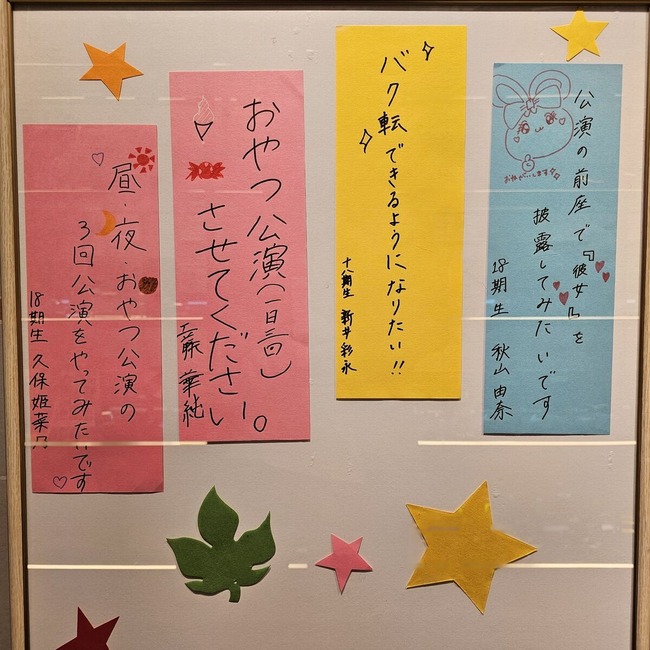 公演の前座で『彼女』を
披露してみたいです
18期生 秋山由奈
おねがいします
バク転できるようになりたい!!
十八期生 新井彩永
おやつ公演(一日三回)
させてください。
工藤華純
昼・夜・おやつ公演の
3回公演をやってみたいです
18期生 久保姫菜乃